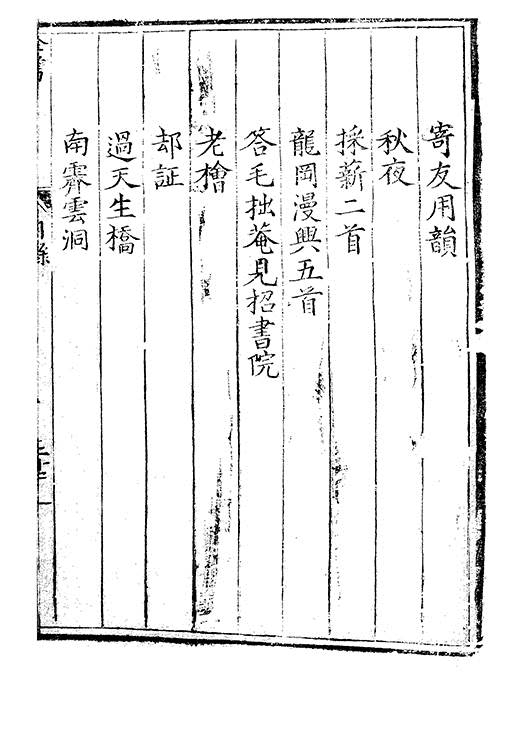 寄友用韻
秋夜
採薪二首
龍岡漫興五首
答毛拙菴見招書院
老檜
却証
過天生橋
南霽雲洞
目錄